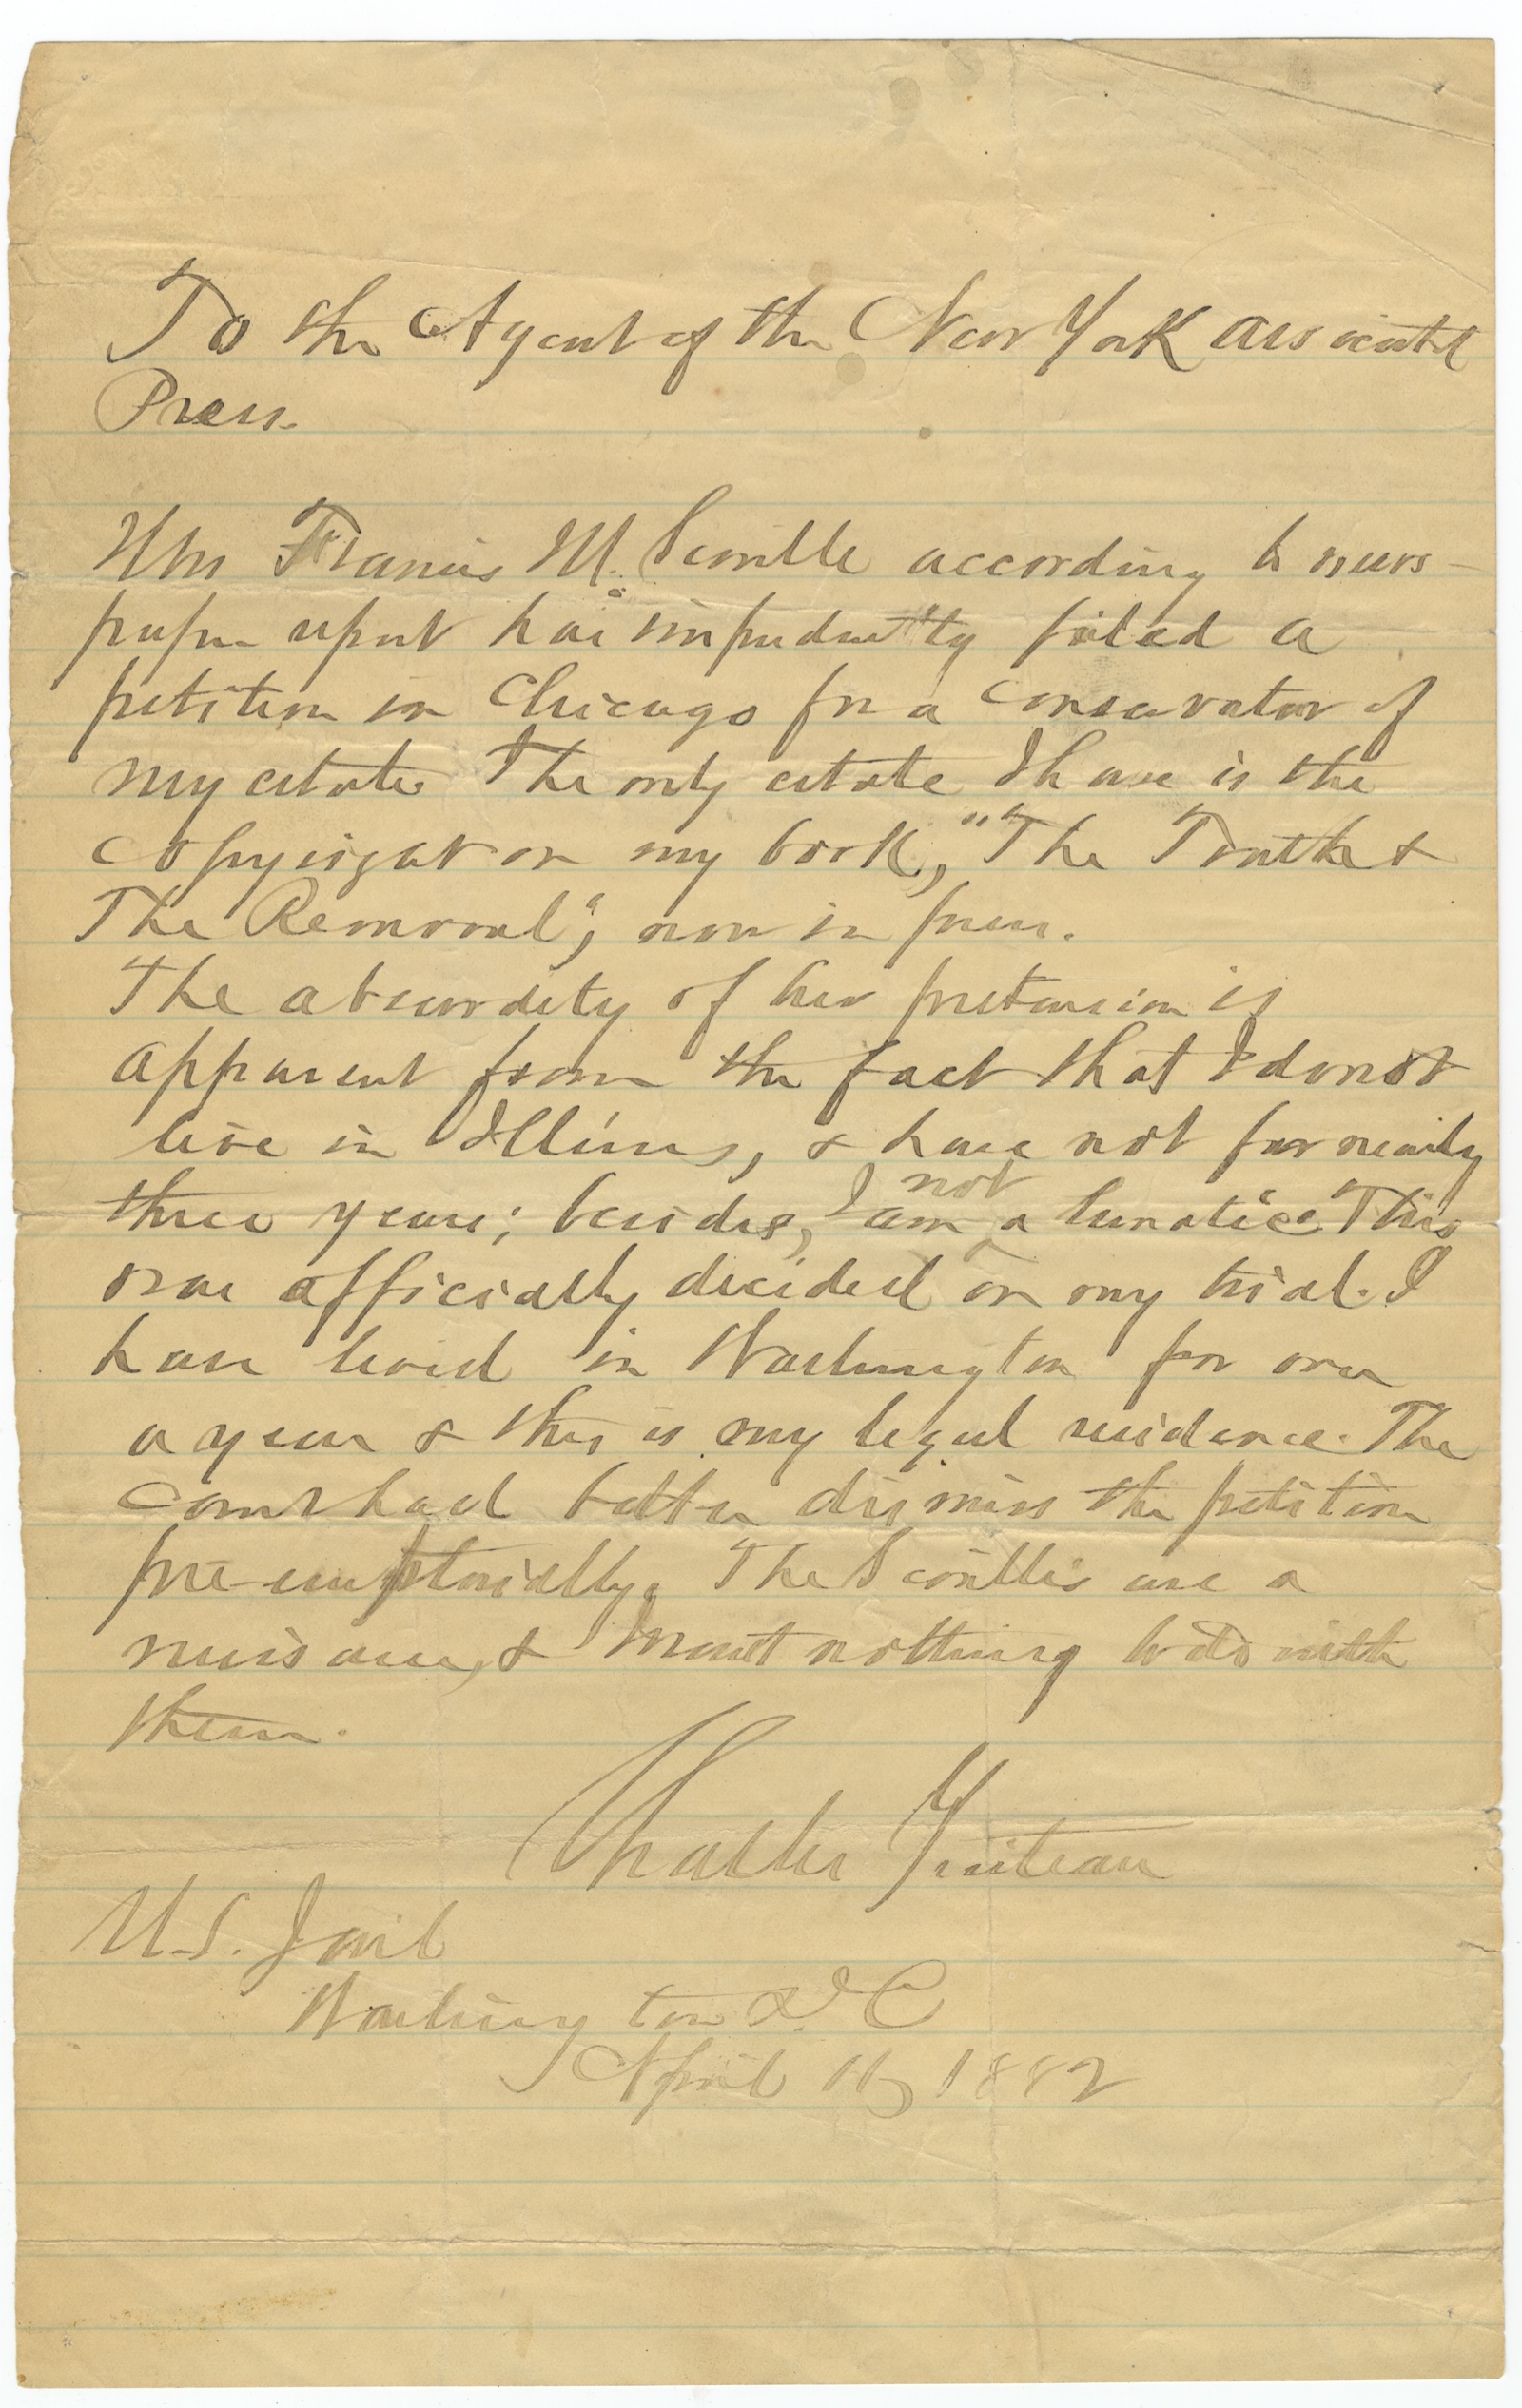 To the Agent of the New York Associated
Press.
Mrs Francis M. Scoville according to news-
paper report has impudently filed a
petition in Chicago for a conservator of
my estate. The only estate I have is the
copyright on my book, "The Truth &
The Removal", now in press.
The absurdity of her pretension is
apparent from the fact that I do not
live in Illinois, & have not for nearly
three years; besides, I am not a lunatic. This
was officially decided on my trial. I
have lived in Washington for over
a year & this is my legal residence. The
court had better dismiss the petition
pre-emptorially. The Scovilles are a
nuisance, & I want nothing to do with
them.
Charles Guiteau
U.S. Jail
Washington D.C
April 11, 1882